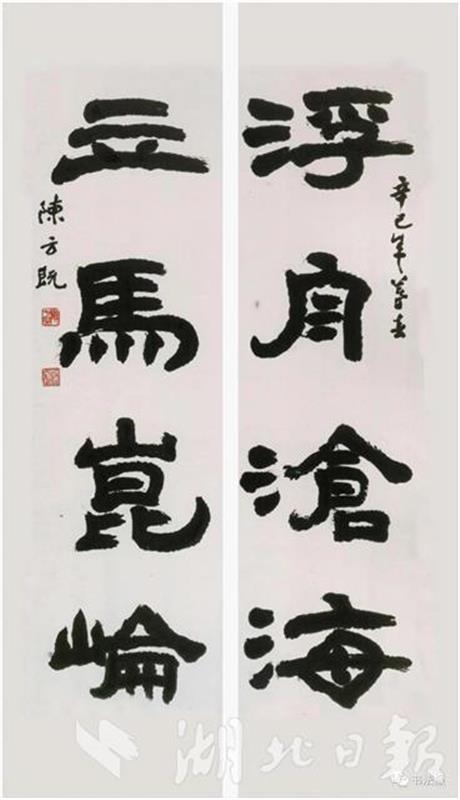 浮舟滄海
辛巳年暮春
立馬崑崙
陳方既
湖北日報
书法报